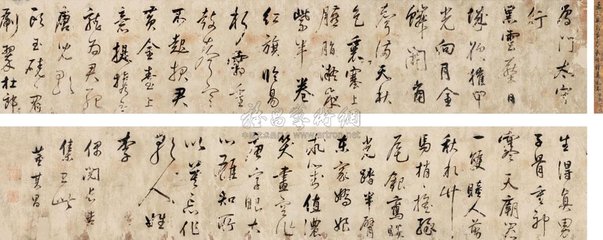 雁門太守
行
黑雲壓日
城城欲摧甲
光向月金
鱗開角
聲滿天秋
色裏塞上
臙脂凝夜
紫半卷
紅旗臨易
水霜重
鼓寒聲
不起報君
黃金臺上
意提攜玉
龍為君死
唐兒歌
頭玉磽磽眉
刷翠杜郎
生得真男
子骨重神
寒天廟器
一雙瞳人剪
秋水竹
馬梢梢搖綠
尾銀鸞睒
光踏半臂
東家嬌娘
求對值濃
笑畫空作
唐字眼大
心雄知所
以莫忘作
歌人姓
李
偶閱昌谷
集書此
董其昌